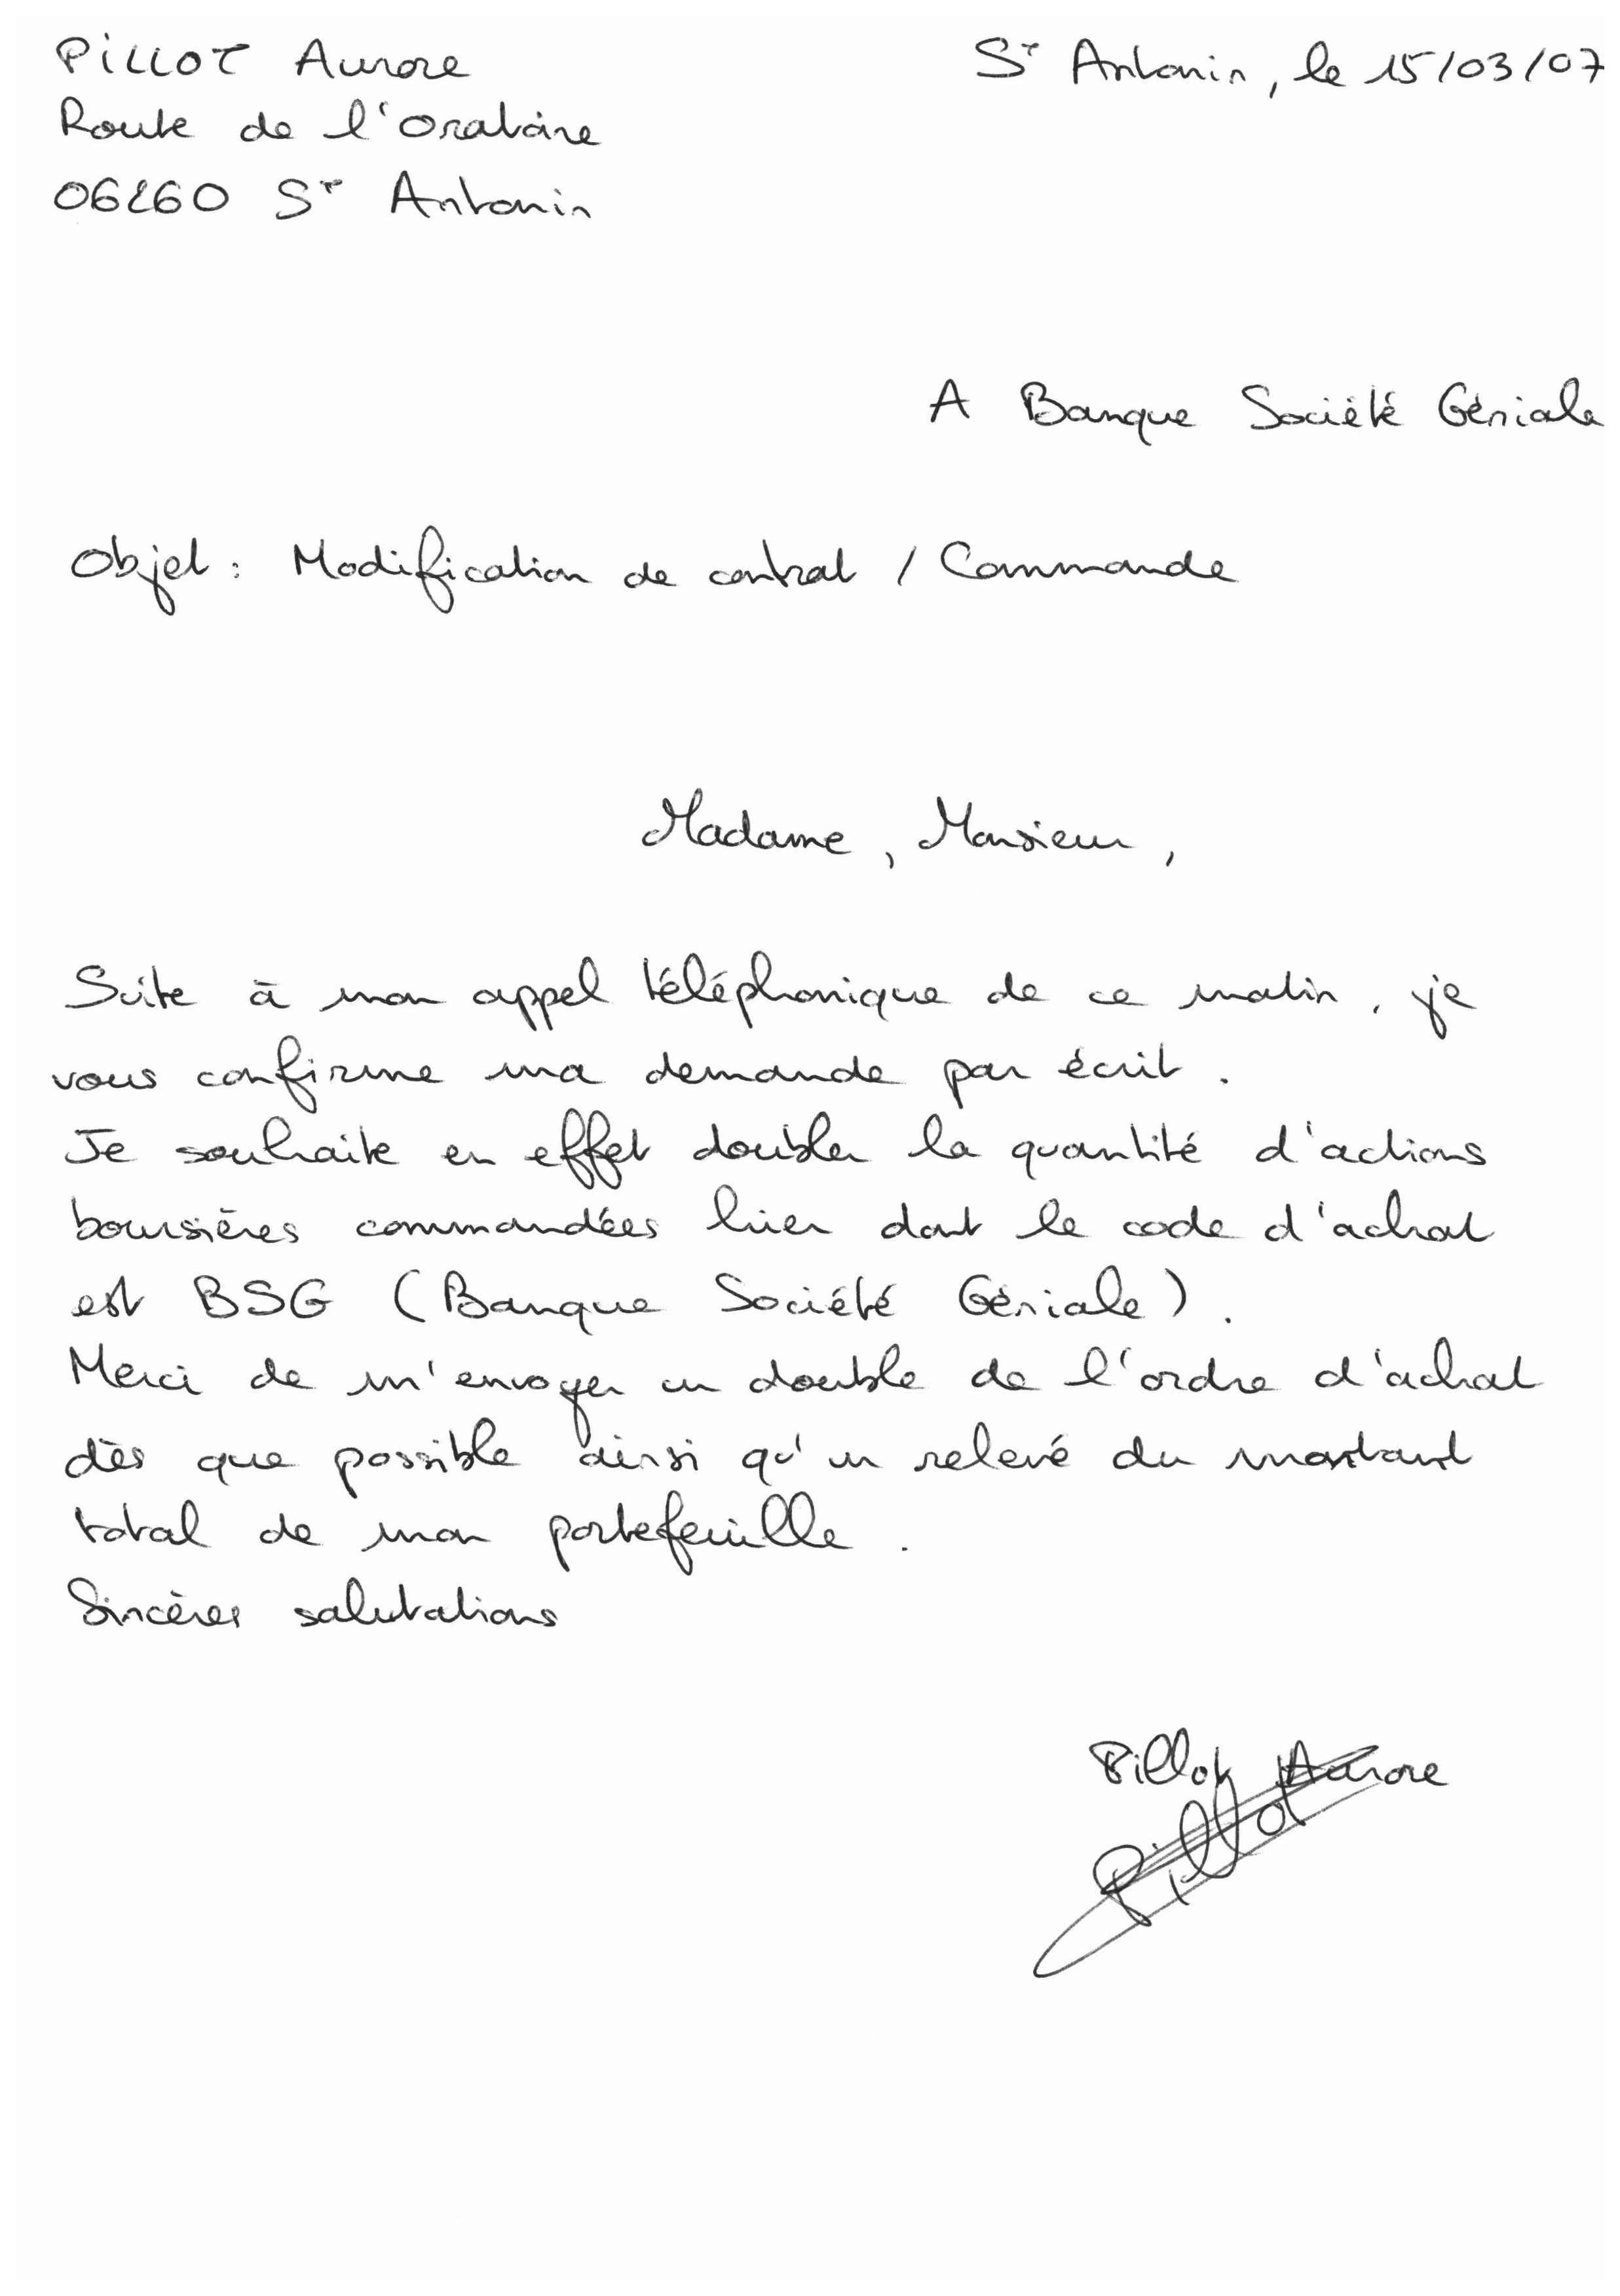 PILLOT Aurore
St Antonin, le 15/03/07
Route de l'Oratoire
06260 St Antonin
A Banque Société Géniale
Objet : Modification de contrat / Commande
Madame, Monsieur,
Suite à mon appel téléphonique de ce matin, je
vous confirme ma demande par écrit.
Je souhaite en effet doubler la quantité d'actions
boursières commandées hier dont le code d'achat
est BSG (Banque Société Géniale).
Merci de m'envoyer un double de l'ordre d'achat
dès que possible ainsi qu'un relevé du montant
total de mon portefeuille.
Sincères salutations
Pillot Aurore
Pillot